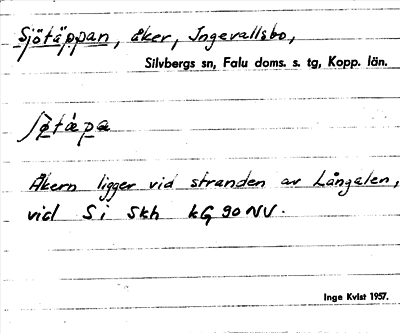 Sjötäppan, åker, Ingevallsbo,
Silvbergs sn, Falu doms. s. tg, Kopp. län.
Åkern ligger vid stranden av Långalen,
vid S i skh kG 90 NV.
Inge Kvist 1957.